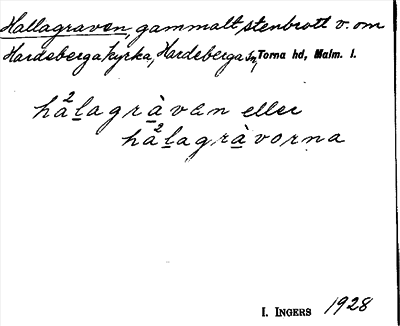 Hallagraven, gammalt stenbrott v. om
Hardeberga kyrka, Hardeberga sn, Torna hd, Malm. l.
hà²l̲agrà̲van eller
hà²l̲agrà̲vorna
I. INGERS 1928